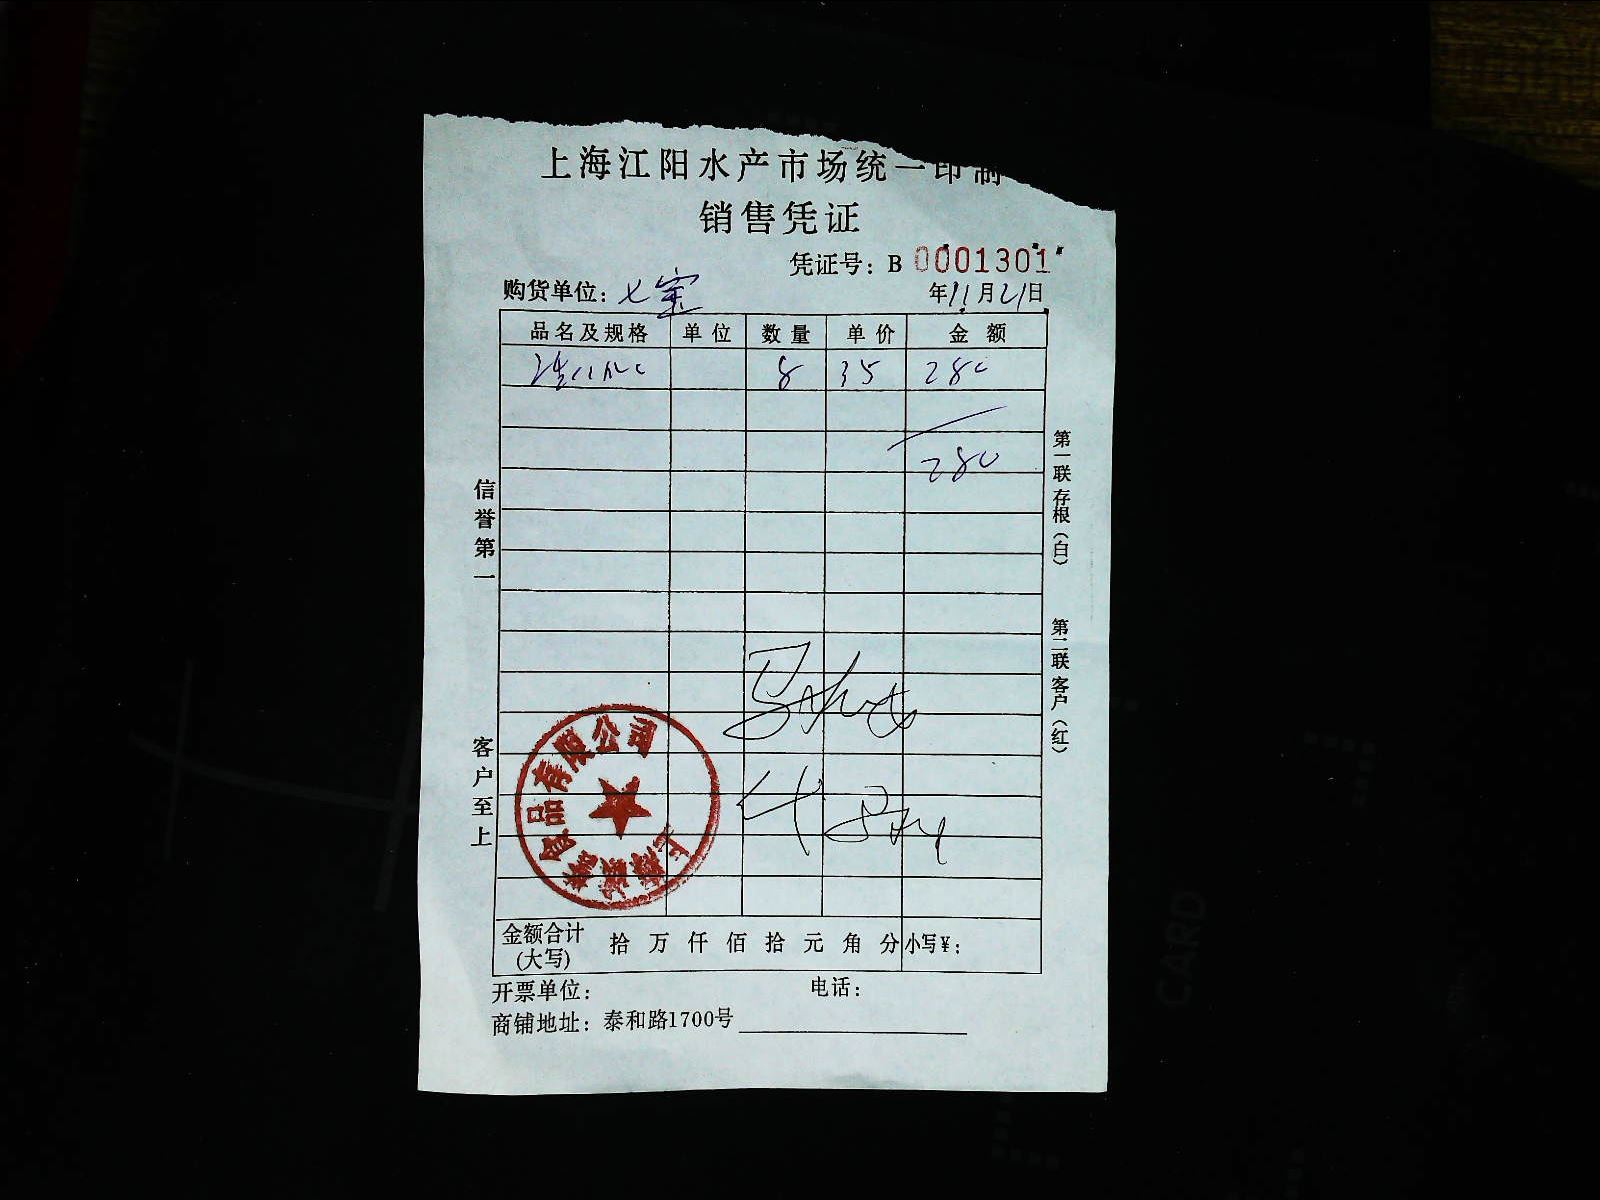 上海江阳水产市场统一印制
销售凭证
凭证号：B 0001301
购货单位：七宝
年11月21日
品名及规格 单位 数量 单价 金额
8 35 280
280
信誉第一
客户至上
第一联存根（白）
第二联客户（红）
上海 食品有限公司
金额合计(大写) 拾 万 仟 佰 拾 元 角 分 小写¥：
开票单位： 电话：
商铺地址：泰和路1700号
CARD